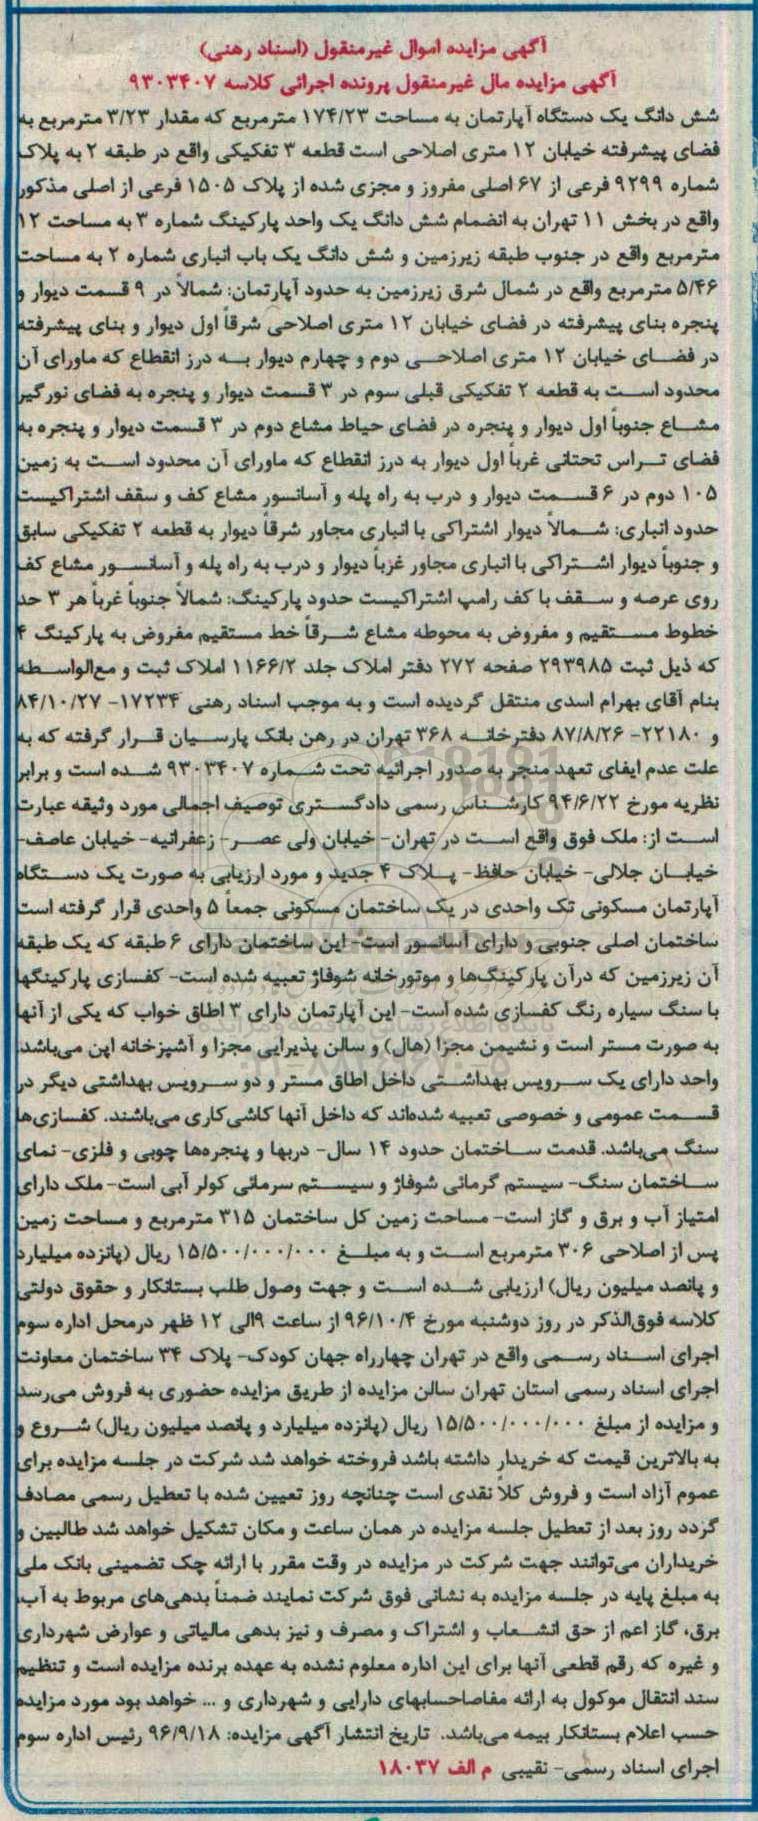 آگهی مزایده اموال غیرمنقول (اسناد رهنی)
آگهی مزایده مال غیرمنقول پرونده اجرائی کلاسه ۹۳۰۳۴۰۷
شش دانگ یک دستگاه آپارتمان به مساحت ۱۷۴/۲۳ مترمربع که مقدار ۳/۲۳ مترمربع به
فضای پیشرفته خیابان ۱۲ متری اصلاحی است قطعه ۳ تفکیکی واقع در طبقه ۲ به پلاک
شماره ۹۲۹۹ فرعی از ۶۷ اصلی مفروز و مجزی شده از پلاک ۱۵۰۵ فرعی از اصلی مذکور
واقع در بخش ۱۱ تهران به انضمام شش دانگ یک واحد پارکینگ شماره ۳ به مساحت ۱۲
مترمربع واقع در جنوب طبقه زیرزمین و شش دانگ یک باب انباری شماره ۲ به مساحت
۵/۴۶ مترمربع واقع در شمال شرق زیرزمین به حدود آپارتمان: شمالاً در ۹ قسمت دیوار و
پنجره بنای پیشرفته در فضای خیابان ۱۲ متری اصلاحی شرقاً اول دیوار و بنای پیشرفته
در فضای خیابان ۱۲ متری اصلاحی دوم و چهارم دیوار به درز انقطاع که ماورای آن
محدود است به قطعه ۲ تفکیکی قبلی سوم در ۳ قسمت دیوار و پنجره به فضای نورگیر
مشاع جنوباً اول دیوار و پنجره در فضای حیاط مشاع دوم در ۳ قسمت دیوار و پنجره به
فضای تراس تحتانی غرباً اول دیوار به درز انقطاع که ماورای آن محدود است به زمین
۱۰۵ دوم در ۶ قسمت دیوار و درب به راه پله و آسانسور مشاع کف و سقف اشتراکیست
حدود انباری: شمالاً دیوار اشتراکی با انباری مجاور شرقاً دیوار به قطعه ۲ تفکیکی سابق
و جنوباً دیوار اشتراکی با انباری مجاور غرباً دیوار و درب به راه پله و آسانسور مشاع کف
روی عرصه و سقف با کف رامپ اشتراکیست حدود پارکینگ: شمالاً جنوباً غرباً هر ۳ حد
خطوط مستقیم و مفروض به محوطه مشاع شرقاً خط مستقیم مفروض به پارکینگ ۴
که ذیل ثبت ۲۹۳۹۸۵ صفحه ۲۷۲ دفتر املاک جلد ۱۱۶۶/۲ املاک ثبت و مع‌الواسطه
بنام آقای بهرام اسدی منتقل گردیده است و به موجب اسناد رهنی ۱۷۲۳۴- ۸۴/۱۰/۲۷
و ۲۲۱۸۰- ۸۷/۸/۲۶ دفترخانه ۳۶۸ تهران در رهن بانک پارسیان قرار گرفته که به
علت عدم ایفای تعهد منجر به صدور اجرائیه تحت شماره ۹۳۰۳۴۰۷ شده است و برابر
نظریه مورخ ۹۴/۶/۲۲ کارشناس رسمی دادگستری توصیف اجمالی مورد وثیقه عبارت
است از: ملک فوق واقع است در تهران- خیابان ولی عصر- زعفرانیه- خیابان عاصف-
خیابان جلالی- خیابان حافظ- پلاک ۴ جدید و مورد ارزیابی به صورت یک دستگاه
آپارتمان مسکونی تک واحدی در یک ساختمان مسکونی جمعاً ۵ واحدی قرار گرفته است
ساختمان اصلی جنوبی و دارای آسانسور است- این ساختمان دارای ۶ طبقه که یک طبقه
آن زیرزمین که درآن پارکینگ‌ها و موتورخانه شوفاژ تعبیه شده است- کفسازی پارکینگها
با سنگ سیاره رنگ کفسازی شده است- این آپارتمان دارای ۳ اطاق خواب که یکی از آنها
به صورت مستر است و نشیمن مجزا (هال) و سالن پذیرایی مجزا و آشپزخانه اپن می‌باشد.
واحد دارای یک سرویس بهداشتی داخل اطاق مستر و دو سرویس بهداشتی دیگر در
قسمت عمومی و خصوصی تعبیه شده‌اند که داخل آنها کاشی‌کاری می‌باشند. کفسازی‌ها
سنگ می‌باشد. قدمت ساختمان حدود ۱۴ سال- دربها و پنجره‌ها چوبی و فلزی- نمای
ساختمان سنگ- سیستم گرمائی شوفاژ و سیستم سرمائی کولر آبی است- ملک دارای
امتیاز آب و برق و گاز است- مساحت زمین کل ساختمان ۳۱۵ مترمربع و مساحت زمین
پس از اصلاحی ۳۰۶ مترمربع است و به مبلغ ۱۵/۵۰۰/۰۰۰/۰۰۰ ریال (پانزده میلیارد
و پانصد میلیون ریال) ارزیابی شده است و جهت وصول طلب بستانکار و حقوق دولتی
کلاسه فوق‌الذکر در روز دوشنبه مورخ ۹۶/۱۰/۴ از ساعت ۹الی ۱۲ ظهر درمحل اداره سوم
اجرای اسناد رسمی واقع در تهران چهارراه جهان کودک- پلاک ۳۴ ساختمان معاونت
اجرای اسناد رسمی استان تهران سالن مزایده از طریق مزایده حضوری به فروش می‌رسد
و مزایده از مبلغ ۱۵/۵۰۰/۰۰۰/۰۰۰ ریال (پانزده میلیارد و پانصد میلیون ریال) شروع و
به بالاترین قیمت که خریدار داشته باشد فروخته خواهد شد شرکت در جلسه مزایده برای
عموم آزاد است و فروش کلاً نقدی است چنانچه روز تعیین شده با تعطیل رسمی مصادف
گردد روز بعد از تعطیل جلسه مزایده در همان ساعت و مکان تشکیل خواهد شد طالبین و
خریداران می‌توانند جهت شرکت در مزایده در وقت مقرر با ارائه چک تضمینی بانک ملی
به مبلغ پایه در جلسه مزایده به نشانی فوق شرکت نمایند ضمناً بدهی‌های مربوط به آب،
برق، گاز اعم از حق انشعاب و اشتراک و مصرف و نیز بدهی مالیاتی و عوارض شهرداری
و غیره که رقم قطعی آنها برای این اداره معلوم نشده به عهده برنده مزایده است و تنظیم
سند انتقال موکول به ارائه مفاصاحسابهای دارایی و شهرداری و ... خواهد بود مورد مزایده
حسب اعلام بستانکار بیمه می‌باشد. تاریخ انتشار آگهی مزایده: ۹۶/۹/۱۸ رئیس اداره سوم
اجرای اسناد رسمی- نقیبی م الف ۱۸۰۳۷